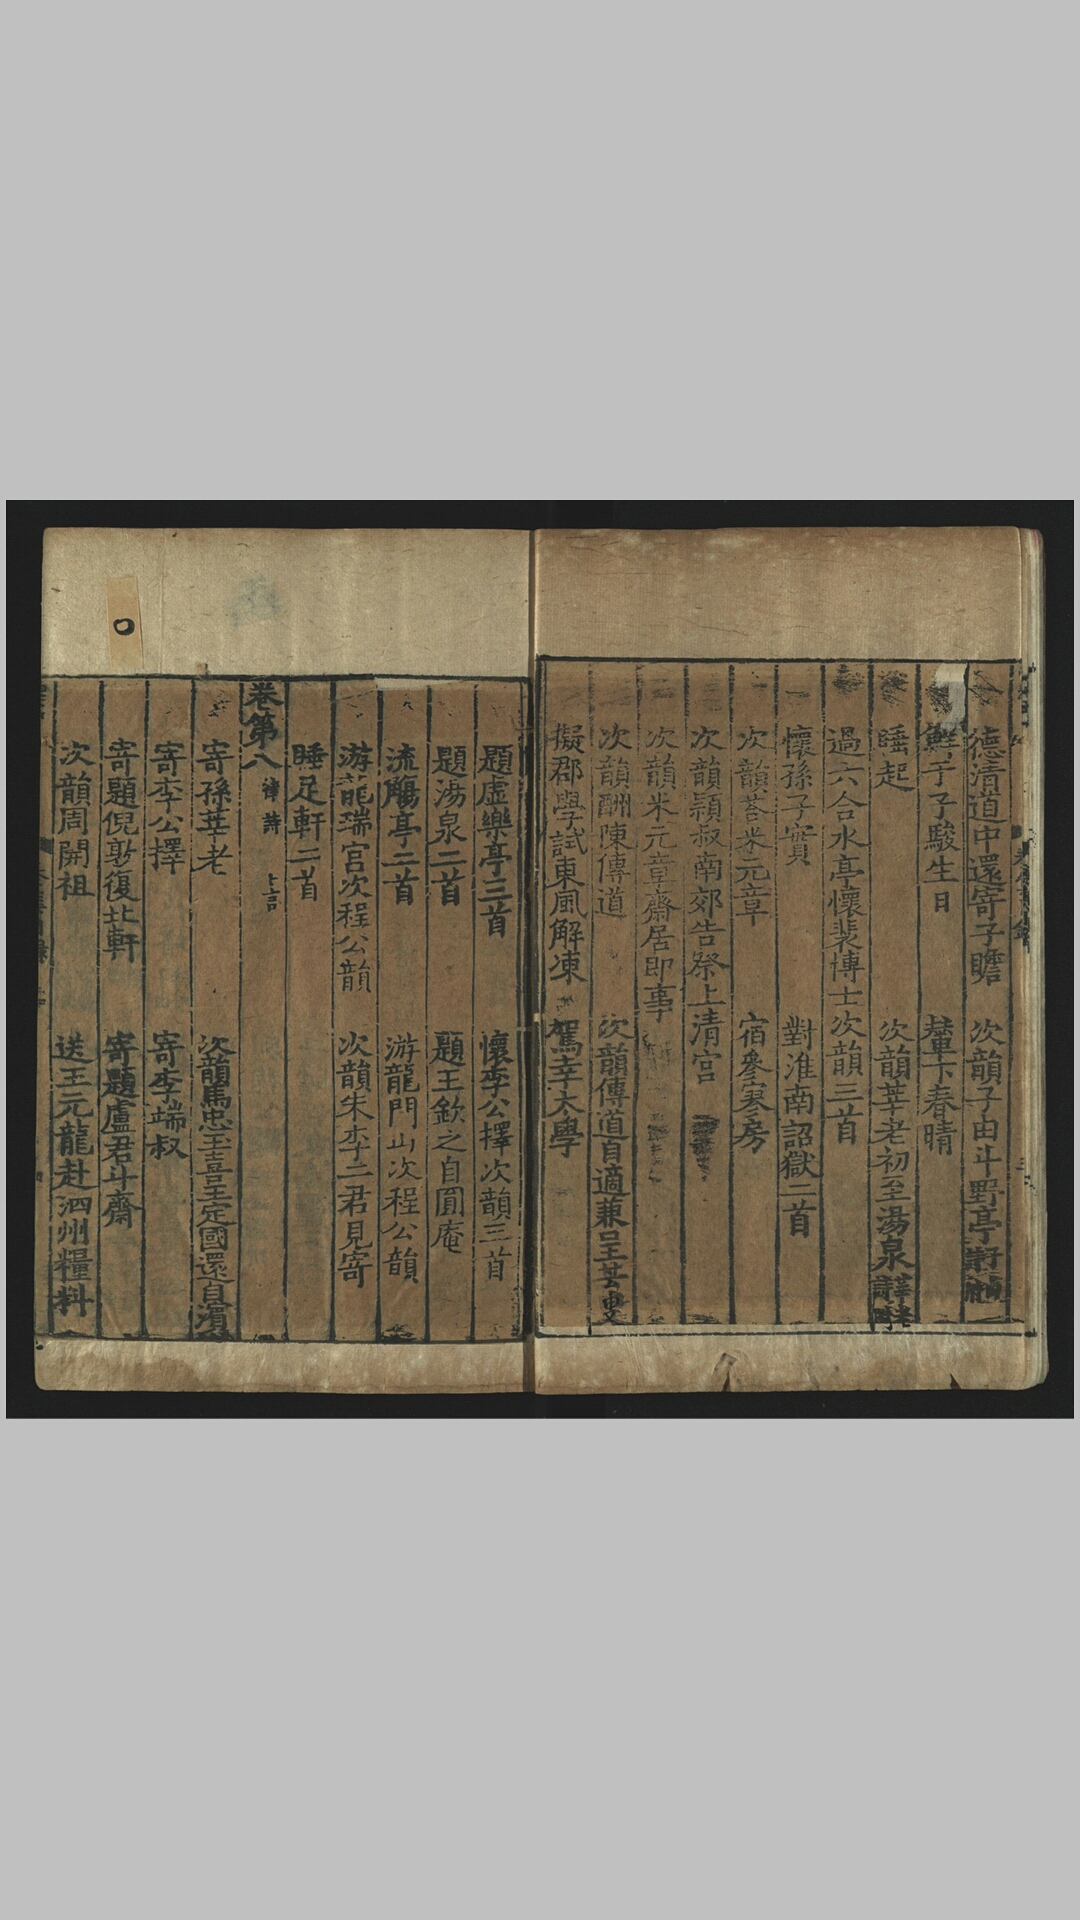 德清道中還寄子瞻　次韻子由斗野亭
鮮于子駿生日　輦下春晴
睡起　次韻莘老初至湯泉
過六合水亭懷裴博士次韻三首
懷孫子實　對淮南詔獄二首
次韻荅米元章　宿參寥房
次韻頴叔南郊告祭上清宫
次韻米元章齋居即事
次韻酬陳傳道　次韻傳道自適兼呈
擬郡學試東風解凍　駕幸太學
題虚樂亭三首　懷李公擇次韻三首
題湯泉二首　題王欽之自圓庵
流觴亭二首　游龍門山次程公韻
游龍瑞宫次程公韻　次韻朱李二君見寄
睡足軒二首
卷第八　律詩
寄孫莘老　次韻馬忠玉喜王定國還自濱
寄李公擇　寄李端叔
寄題倪敦復北軒　寄題盧君斗齋
次韻周開祖　送王元龍赴泗州糧料